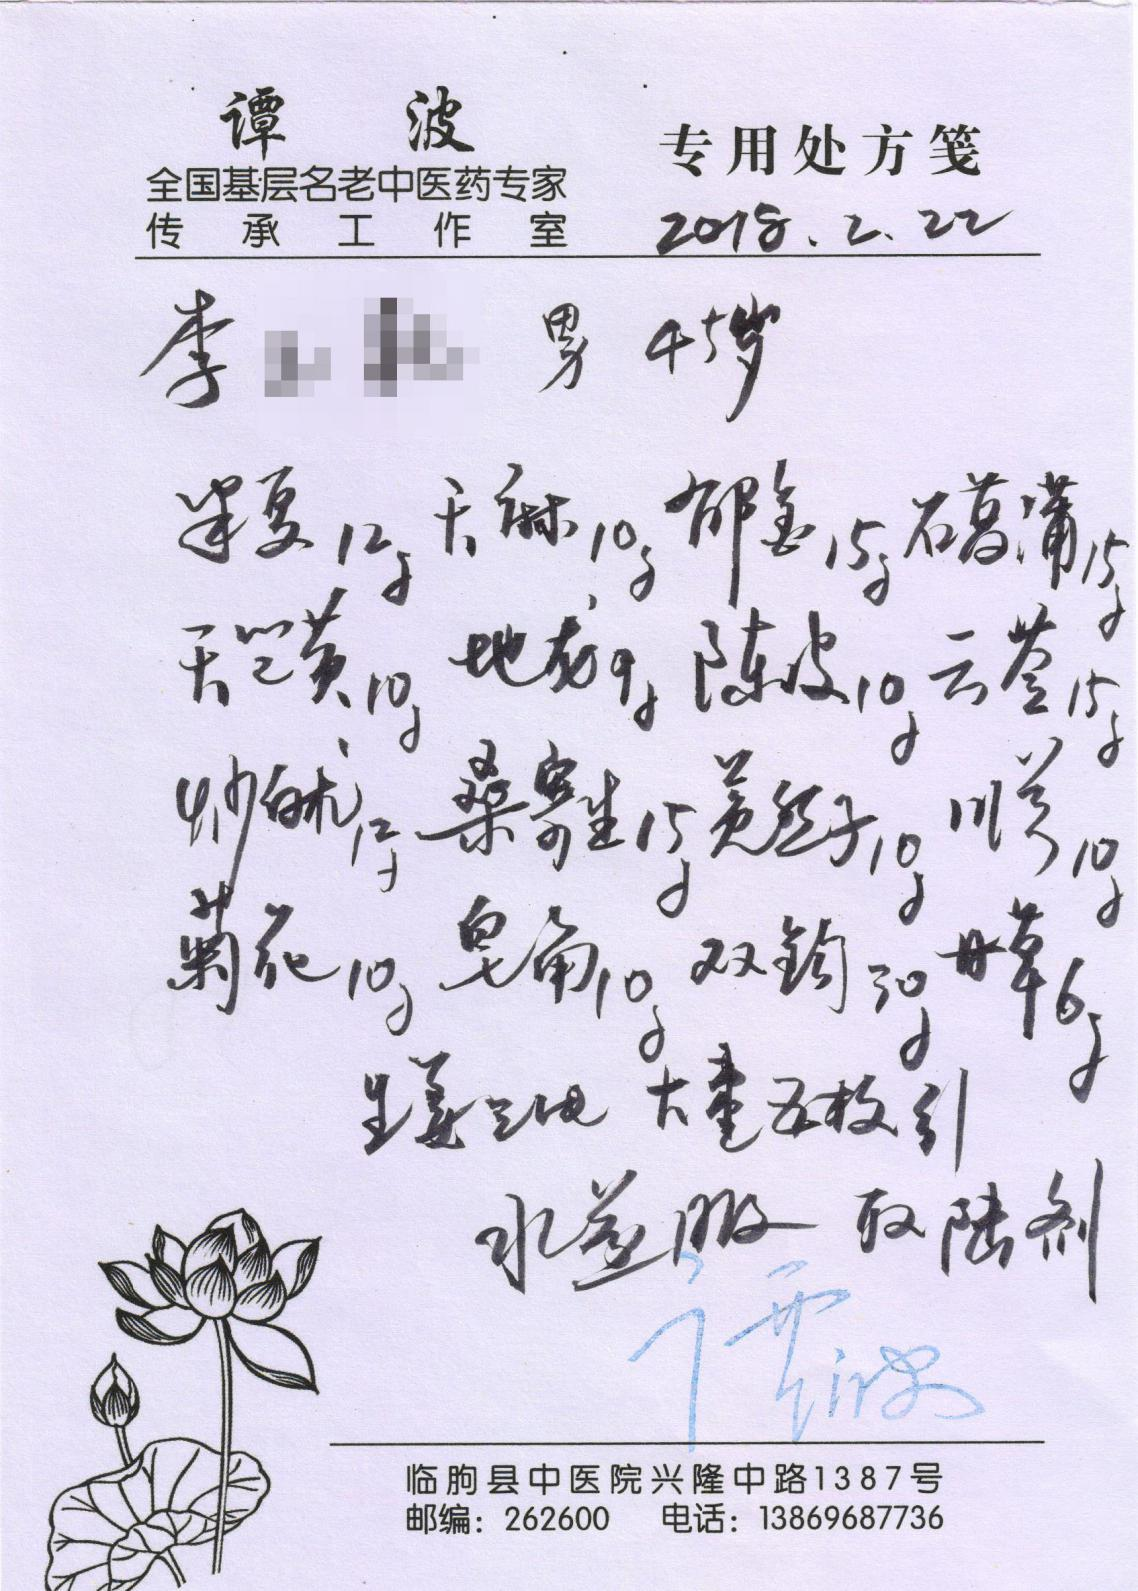 谭波 专用处方笺
全国基层名老中医药专家
传承工作室 2018.2.22
李 男 45岁
半夏12g 天麻10g 郁金15g 石菖蒲15g
天竺黄10g 地龙9g 陈皮10g 云苓15g
炒白术12g 桑寄生15g 子10g 川芎10g
菊花10g 皂角10g 双钩30g 甘草6g
生姜三片 大枣五枚引
水煎服 取陆剂
谭波
临朐县中医院兴隆中路1387号
邮编：262600 电话：13869687736